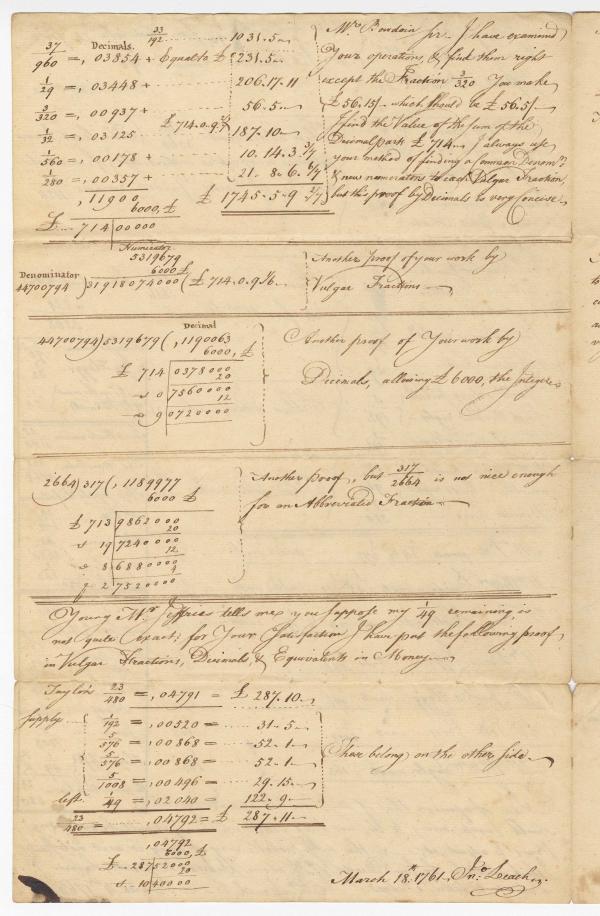 33/192 ........ 1031.5
Decimals.
37/960 =, 03854 + Equal to £ 231.5
1/29 =, 03448 + ........ 206.17.11
3/320 =, 00937 + ........ 56.5
1/32 =, 03125 ... £ 714.0.9 3/7 187.10
1/560 =, 00178 + ........ 10.14.3 3/7
1/280 =, 00357 + ........ 21.8.6 6/7
,11900 £ 1745.5.9 2/7
6000, £
£ ... 714|00000
Mr. Bowdoin Sr. I have examined
Your operation, & find them right
except the Fraction 3/320 You make
£ 56.15/ which should be £ 56.5/
I find the Value of the sum of the
Decimal parts £ 714. I always use
your method of finding a Common Denomr.
& new numerators to each Vulgar Fraction,
but this proof by Decimals is very Concise
Numerator
5319679
6000 £
Denominator
44700794)31918074000(£ 714.0.9 1/6
Another proof of your work by
Vulgar Fractions
Decimal
44700794)5319679(,1190063
6000, £
£ 714|0378000
20
s 0|7560000
12
9|0720000
Another proof of Your work by
Decimals, allowing £ 6000, the Integer
2664)317(,1189977
6000 £
£ 713|9862000
20
s 19|7240000
12
8|6880000
4
f 2|7520000
Another proof, but 317/2664 is not nice enough
for an Abbreviated Fraction
Young Mr. Jeffries tells me you suppose my 1/49 remaining is
not quite Exact; for Your Satisfaction I have put the following proof
in Vulgar Fractions, Decimals, & Equivalents in Money
Taylor's 23/480 =, 04791 = £ 287.10
supply 1/192 =, 00520 = 31.5
5/576 =, 00868 = 52.1
5/576 =, 00868 = 52.1
5/1008 =, 00496 = 29.15
left 1/49 =, 02040 = 122.9
23/480 = ,04792 = £ 287.11
These belong on the other side
,04792
6000, £
£ 287|52000
20
s. 10|40000
March 18th. 1761 Jno. Leach